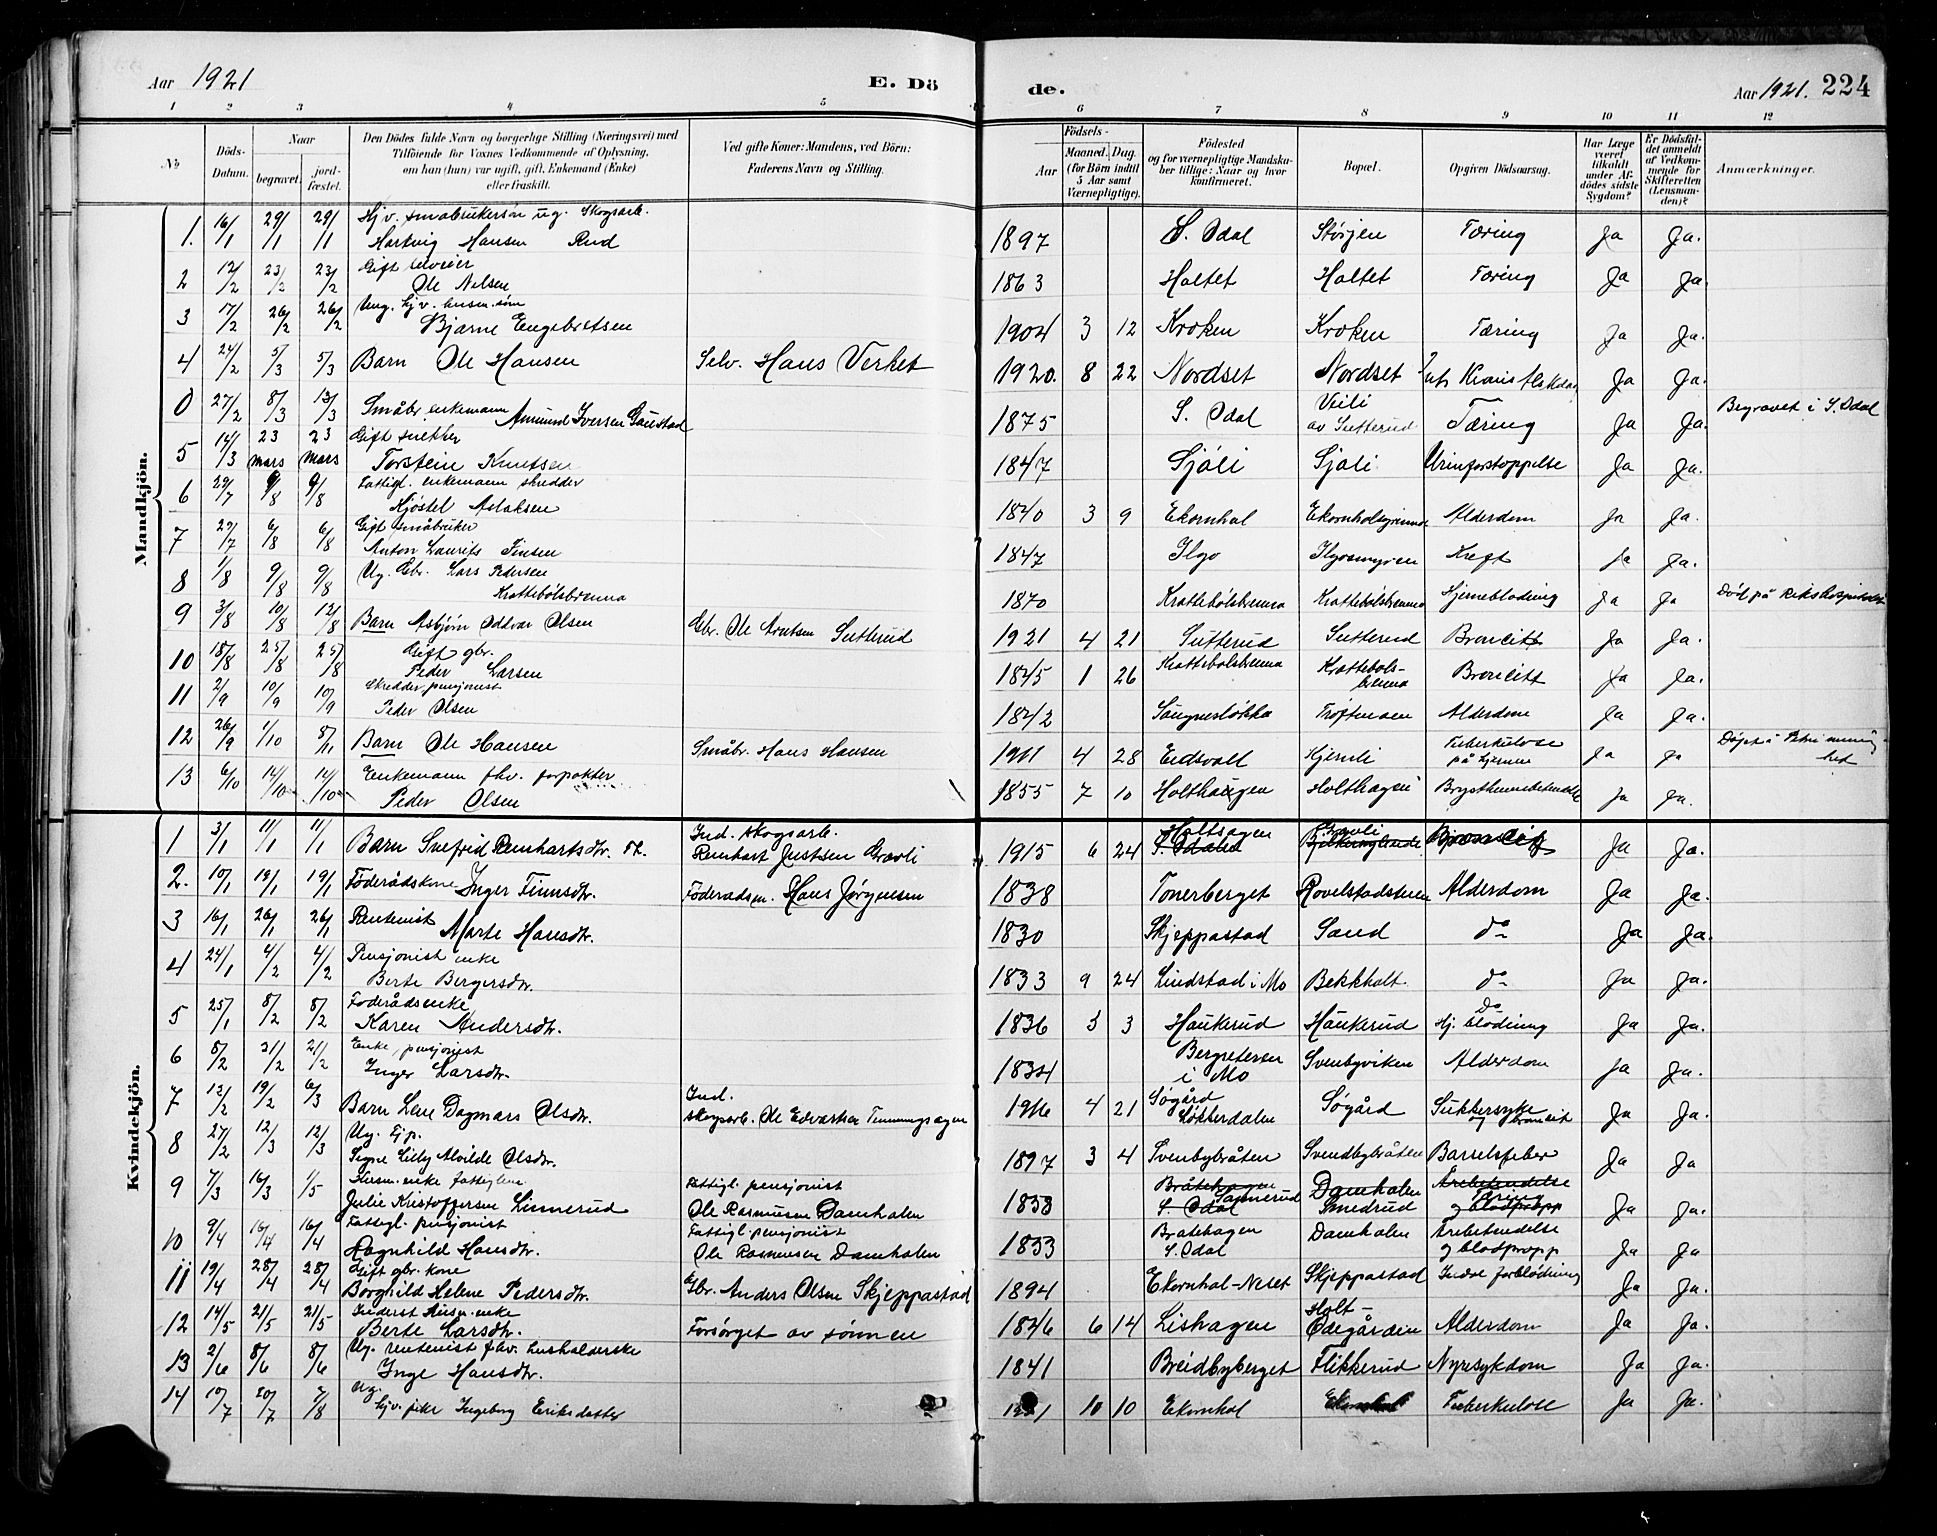 Aar 1921 E. Dö de. Aar 1921. 224
1 2 3 4 5 6 7 8 9 10 11 12
No Döds-Datum. Naar begravet. jordfæstet. Den Dödes fulde Navn og borgerlige Stilling (Næringsvei) med Tilföiende for Voxnes Vedkommende af Oplysning, om han (hun) var ugift, gift, Enkemand (Enke) eller fraskilt. Ved gifte Koner: Mandens, ved Börn: Faderens Navn og Stilling. Födsels- Aar Maaned. Dag. (for Börn indtil 5 Aar samt Værnepligtige). Födested og for værnepligtige Mandskaber tillige: Naar og hvor konfirmeret. Bopæl. Opgiven Dödsaarsag. Har Læge været tilkaldt under Afdödes sidste Sygdom? Er Dödsfaldet anmeldt af Vedkommende for Skifteretten (Lensmanden)? Anmærkninger.
Mandkjön.
1. 16/1 29/1 29/1 Hjv. småbrukersøn ug. Skogsarb. Hartvig Hansen Rud 1897 S. Odal Störjen Tæring Ja Ja.
2 12/2 23/2 23/2 Gift selveier Ole Nilsen 1863 Holtet Holtet Tæring Ja Ja.
3 17/2 26/2 26/2 Ung. hjv. husm. søn Bjarne Engebretsen 1904 3 12 Kroken Kroken Tæring Ja Ja.
4 24/2 5/3 5/3 Barn Ole Hansen Selv. Hans Verket 1920. 8 22 Nordset Nordset Ja Ja.
0 27/2 8/3 13/3 Småbr. enkemann Amund Iversen Gaustad 1875 S. Odal Veili av Sutterud Tæring Ja Ja. Begravet i S. Odal
5 14/3 23 mars 23 mars Gift snekker Torstein Knutsen 1847 Sjøli Sjøli Urinforstoppelse Ja Ja.
6 29/7 9/8 9/8 Fattigl. enkemann skredder Kjøstel Aslaksen 1840 3 9 Ekornhol Alderdom Ja Ja.
7 29/7 6/8 6/8 Gift småbruker Anton Laurits Finsen 1847 Ilgo Ilgosmyren Kreft Ja Ja.
8 1/8 9/8 9/8 Ug. Gbr. Lars Pedersen Krattebølsbrenna 1870 Krattebølsbrenna Krattebølsbrenna Hjerneblødning Ja Ja Död på Rikshospitalet
9 3/8 10/8 12/8 Barn Asbjørn Oddvar Olsen Gbr. Ole Arntsen Sutterud 1921 4 21 Sutterud Sutterud Bronkitt Ja Ja.
10 18/8 25/8 25/8 Gift gbr. Peder Larsen 1845 1 26 Krattebølsbrenna Krattebølsbrenna Bronkitt Ja Ja.
11 2/9 10/9 10/9 Skredder, pensjonist Peder Olsen 1842 Sangnesløkka Alderdom Ja Ja.
12 26/9 1/10 8/11 Barn Ole Hansen Småbr. Hans Hansen 1911 4 28 Eidsvoll Hjemli Tuberkulose på hjernen Ja Ja
13 6/10 14/10 14/10 Enkemann fhv. forpakter Peder Olsen 1855 7 10 Holthaugen Holthagen Brysthinnebetendelse Ja Ja.
Kvindekjön.
1 3/1 11/1 11/1 Barn Svefrid Reinhartsdtr. Ind. skogsarb. Reinhart Justsen Gravli 1915 6 24 Holtsagen S. Odalen Gravli Bronkitt Ja Ja.
2. 10/1 19/1 19/1 Föderådskone Inger Finnsdtr. Föderadsm. Hans Jørgensen 1838 Tonerberget Rovelstadstuen Alderdom Ja Ja.
3 16/1 26/1 26/1 Rentenist Marte Hansdtr. 1830 Skjeppastad Sand do Ja Ja.
4 24/1 4/2 4/2 Pensjonist enke Berte Bergersdtr. 1833 9 24 Lindstad i Mo Bekkholt. do Ja Ja.
5 25/1 8/2 8/2 Foderådsenke Karen Andersdtr. 1836 5 3 Haukerud Haukerud Do Hj. blødning Ja Ja.
6 8/2 21/2 21/2 Enke, pensjonist Inger Larsdtr. 1834 Bergpetersen i Mo Svenbyviken Alderdom Ja Ja.
7 12/2 19/2 6/3 Barn Lene Dagmars Olsdtr. Ind. skogsarb. Ole Edvartsen 1916 4 21 Søgård Løkkerdalen Søgård Sukkersyke og bronkitt Ja Ja.
8 27/2 12/3 12/3 Ug. Tjp. Signe Lilly Alvilde Olsdtr. 1897 3 4 Svenbybråten Svendbybråten Barselsfeber Ja Ja
9 7/3 16/3 1/5 Husm. enke fattiglem Julie Kristoffersen Linnerud Fattigl. pensjonist Ole Rasmusen Damholen 1838 Bråtehagen S. Odal Sannerud Damholen Smedrud Årebetendelse og blodpropp Tæring Ja Ja.
10 9/4 16/4 16/4 Fattigl. pensjonist Ragnhild Hansdtr. Fattigl pensjonist Ole Rasmusen Damholen 1833 Bratehagen S. Odal Damholen Årebetendelse og blodpropp Ja Ja
11 19/4 28/4 28/4 Gift gbr. kone Borghild Helene Pedersdtr. Gbr. Anders Olsen Skjeppastad 1894 Ekornhol-Neset Skjeppastad Indre forblødning Ja Ja.
12 14/5 21/5 21/5 Inderst husm. enke Berte Larsdtr. Forsørget av sønnen 1846 6 14 Lishagen Holt-Ödegården Alderdom Ja Ja.
13 2/6 8/6 8/6 Ug. rentenist fhv. husholderske Inge Hansdtr. 1841 Breidbyberget Flikkerud Nyresykdom Ja Ja.
14 10/7 20/7 Ug. hjv. pike Ingeborg Eriksdatter 10 10 Ekornhol Ekornhol Tuberkulose Ja Ja.